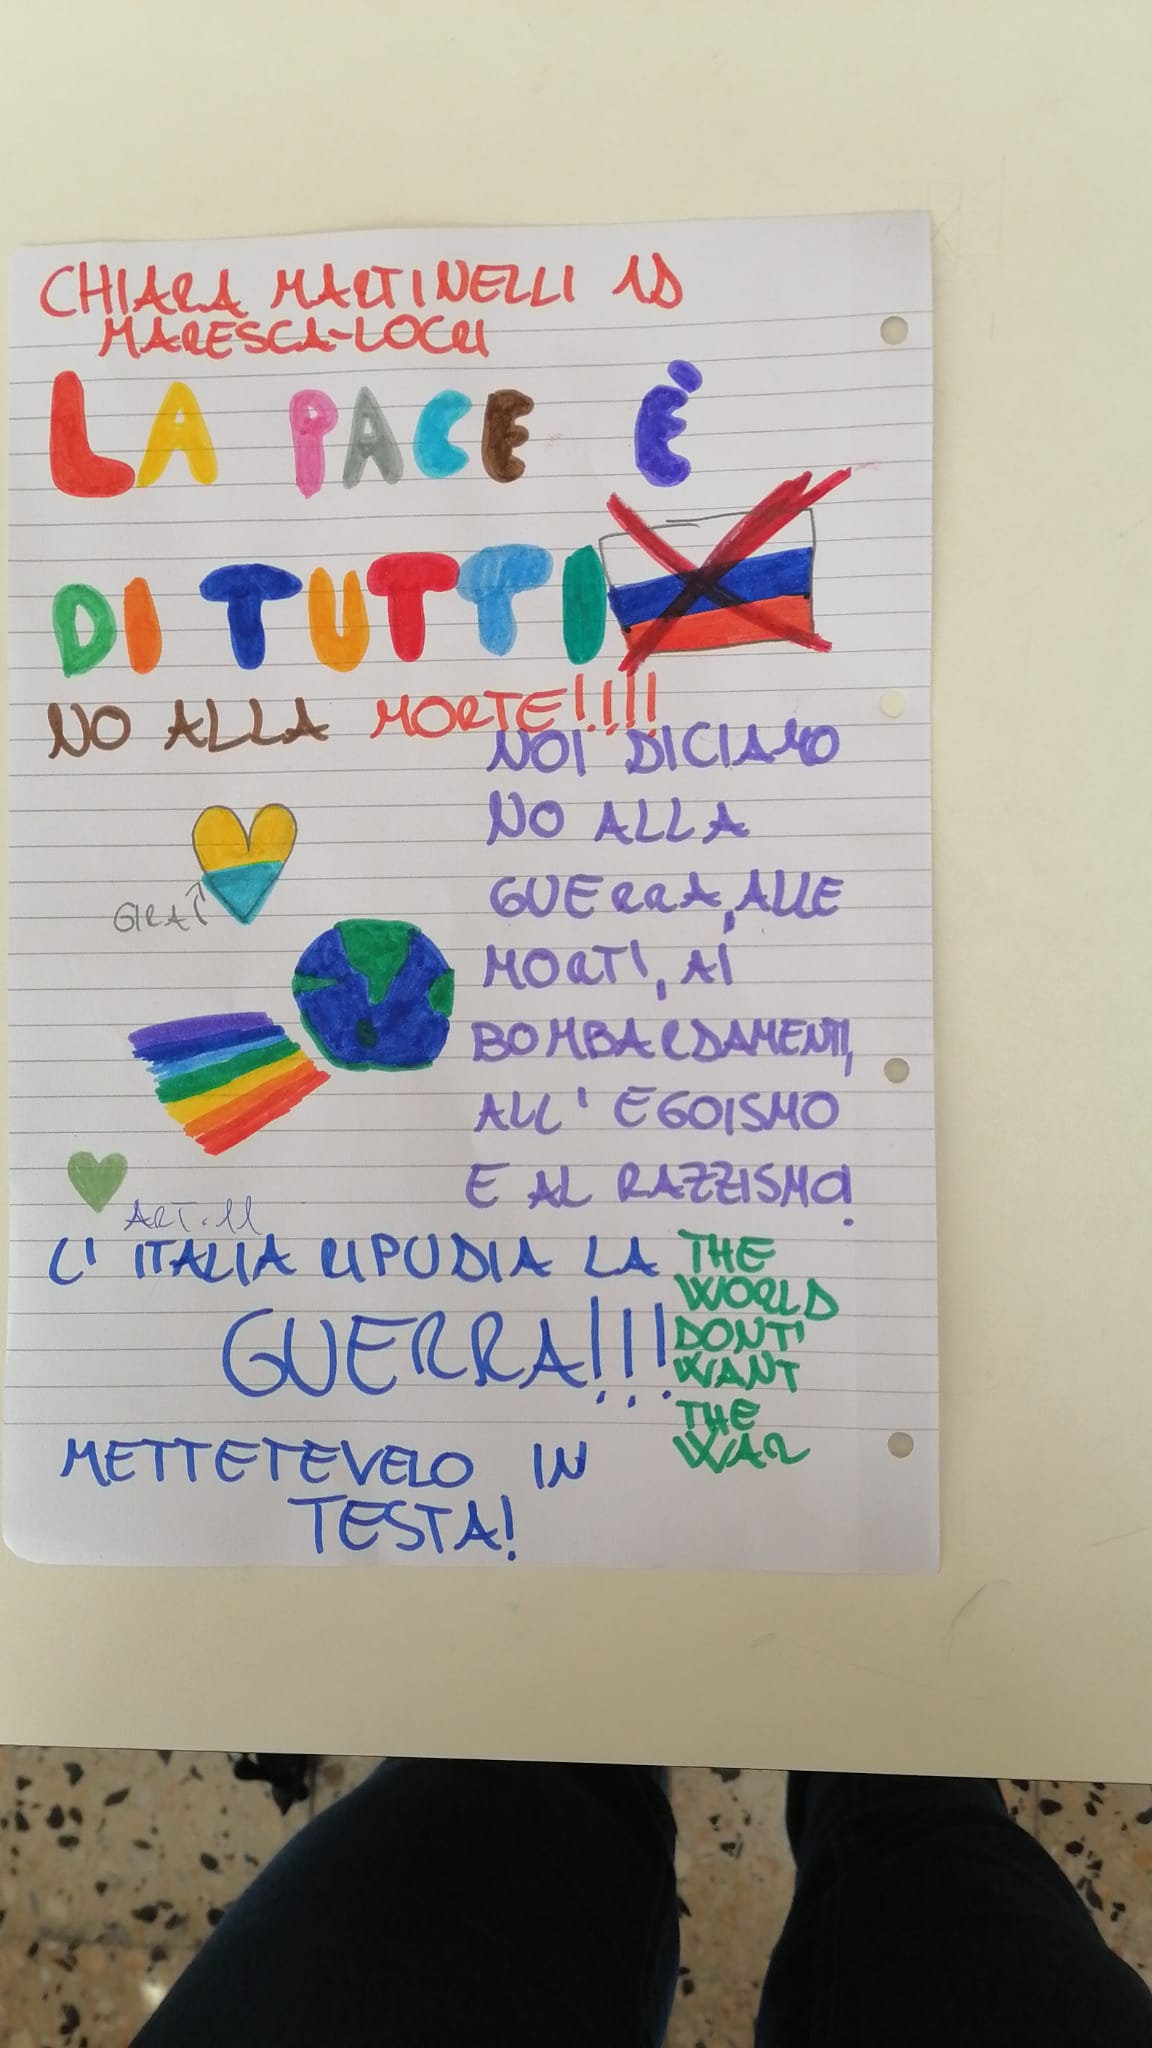 CHIARA MARTINELLI 1D
MARESCA-LOCRI
LA PACE È
DI TUTTI
NO ALLA MORTE!!!!
NOI DICIAMO
NO ALLA
GUERRA, ALLE
MORTI, AI
BOMBARDAMENTI,
ALL' EGOISMO
E AL RAZZISMO!
GIRA
ART. 11
L' ITALIA RIPUDIA LA
GUERRA!!!
THE
WORLD
DONT'
WANT
THE
WAR
METTETEVELO IN
TESTA!